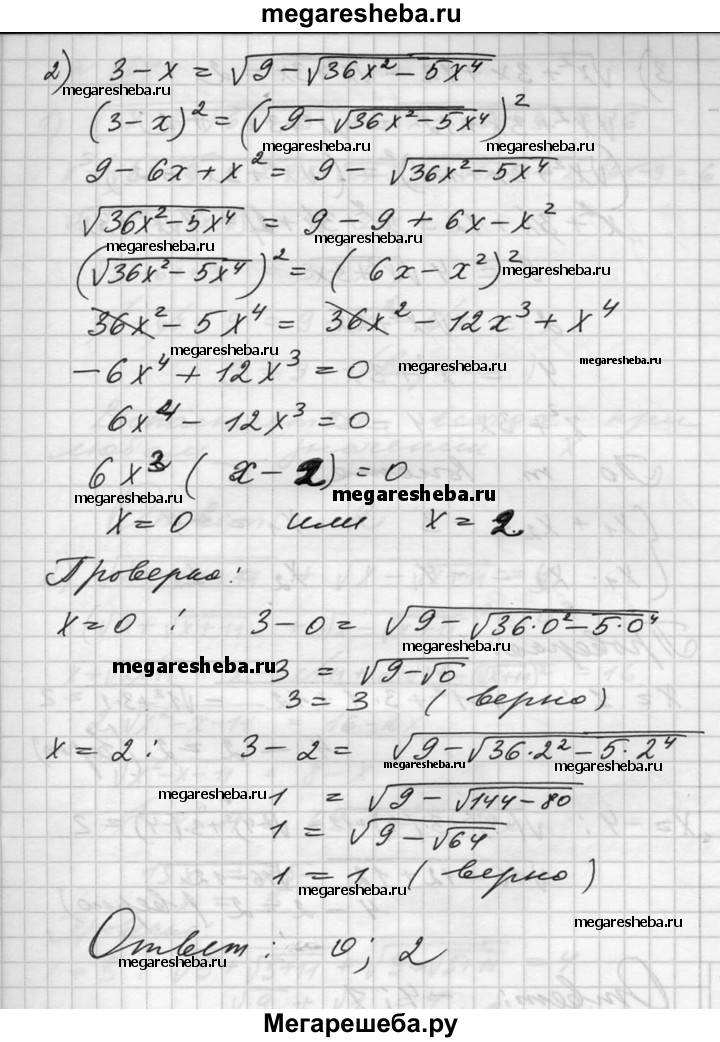 megaresheba.ru
2) 3 − x = √(9 − √(36x² − 5x⁴))
megaresheba.ru megaresheba.ru
(3 − x)² = (√(9 − √(36x² − 5x⁴)))²
megaresheba.ru megaresheba.ru
9 − 6x + x² = 9 − √(36x² − 5x⁴)
megaresheba.ru
√(36x² − 5x⁴) = 9 − 9 + 6x − x²
megaresheba.ru megaresheba.ru
(√(36x² − 5x⁴))² = (6x − x²)²
megaresheba.ru megaresheba.ru
36x² − 5x⁴ = 36x² − 12x³ + x⁴
megaresheba.ru
−6x⁴ + 12x³ = 0
megaresheba.ru megaresheba.ru
6x⁴ − 12x³ = 0
6x³ (x − 2) = 0
megaresheba.ru megaresheba.ru
x = 0 или x = 2
Проверка:
x = 0 : 3 − 0 = √(9 − √(36·0² − 5·0⁴))
megaresheba.ru
megaresheba.ru 3 = √(9 − √0)
3 = 3 (верно)
x = 2 : 3 − 2 = √(9 − √(36·2² − 5·2⁴))
megaresheba.ru megaresheba.ru
megaresheba.ru 1 = √(9 − √(144 − 80))
1 = √(9 − √64)
1 = 1 (верно)
megaresheba.ru
megaresheba.ru
Ответ: 0; 2
megaresheba.ru
Мегарешеба.ру